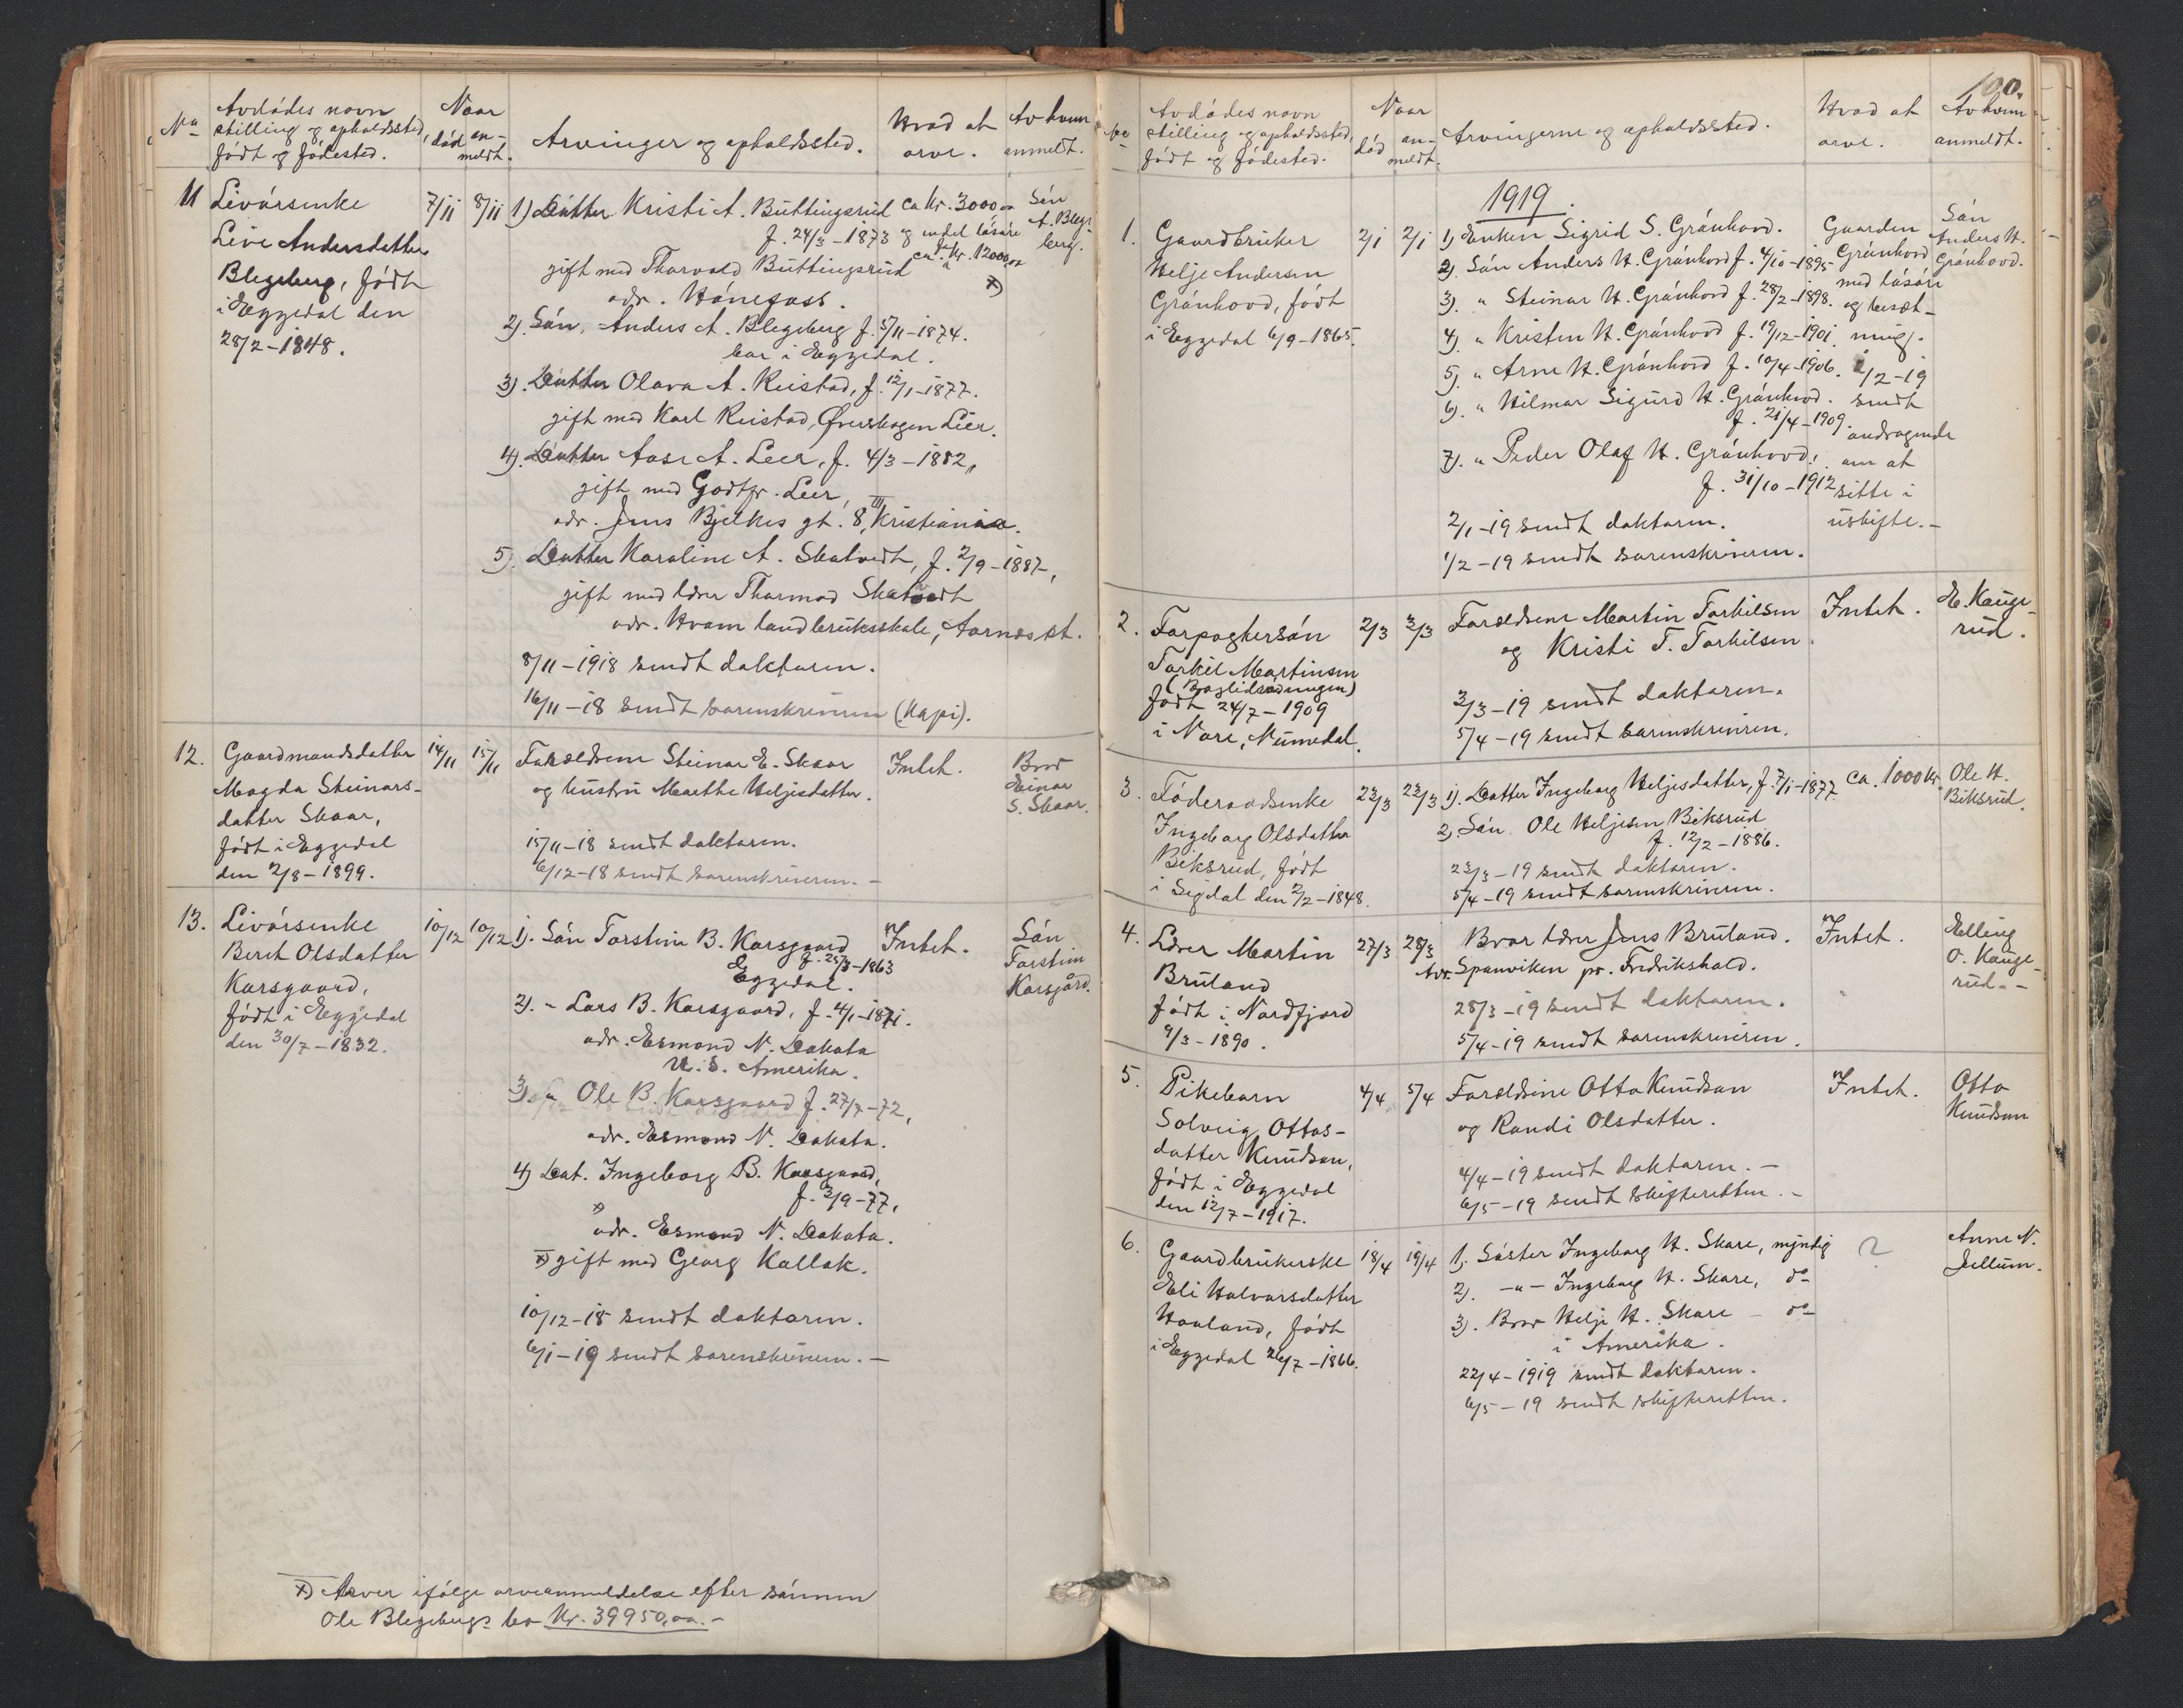 No
Avdødes navn
stilling og opholdssted,
født og fødested.
Naar
død
an-
meldt.
Arvinger og opholdssted.
Hvad at
arve.
Av hvem
anmeldt.
11
Livørsenke
Live Andersdatter
Blegeberg, født
i Eggedal den
28/2-1848.
7/11
8/11
1) Datter Kristi A. Buttingsrud
f. 24/3-1873
gift med Thorvald Buttingsrud
adr. Hønefoss.
2). Søn, Anders A. Blegeberg f. 5/11-1874.
bor i Eggedal.
3). Datter Olava A. Reistad, f. 12/1-1877.
gift med Karl Reistad, Øverskogen Lier.
4). Datter Aase A. Leer, f. 4/3-1882,
gift med Godtfr. Leer,
adr. Jens Bjelkes gt. 8, III Kristiania.
5). Datter Karoline A. Skatvedt, f. 2/9-1887,
gift med lærer Thormod Skatvedt
adr. Hvam landbruksskole, Aarnes st.
8/11-1918 sendt doktoren.
16/11-18 sendt sorenskriveren (Kapi).
ca kr. 3000,00
og endel løsøre
ca. kr. 12000,00
x)
Søn
A. Blege-
berg.
12.
Gaardmandsdatter
Magda Steinars-
datter Skaar,
født i Eggedal
den 2/8-1899.
14/11
15/11
Forældrene Steinar E. Skaar
og hustru Marthe Heljesdatter.
15/11-18 sendt doktoren.
6/12-18 sendt sorenskriveren. -
Intet.
Bror
Einar
S. Skaar.
13.
Livørsenke
Berit Olsdatter
Karsgaard,
født i Eggedal
den 30/7-1832.
10/12
10/12
1). Søn Torstein B. Karsgaard
f. 25/3-1863
Eggedal.
2). - Lars B. Karsgaard, f. 4/1-1871.
adr. Esmond N. Dakota
U. S. Amerika.
3) " Ole B. Karsgaard f. 27/7-72,
adr. Esmond N. Dakota.
4) Dat. Ingeborg B. Karsgaard,
f. 3/9-77,
x)
adr. Esmond N. Dakota.
x) gift med Georg Kallok.
10/12-18 sendt doktoren.
6/1-19 sendt sorenskriveren. -
Intet.
Søn
Torstein
Karsgård.
x) Arver ifølge arveanmeldelse efter sønnen
Ole Blegebergs bo kr. 39950,00.-
100.
No
Avdødes navn
stilling og opholdssted,
født og fødested.
Naar
død
an-
meldt.
Arvingerne og opholdssted.
Hvad at
arve.
Av hvem
anmeldt.
1919.
1.
Gaardbruker
Helje Andersen
Grønhovd, født
i Eggedal 6/9-1865.
2/1
2/1
1) Enken Sigrid S. Grønhovd.
2). Søn Anders H. Grønhovd f. 4/10-1895
3). " Steinar H. Grønhovd f. 28/2-1898.
4). " Kristen H. Grønhovd f. 19/12-1901.
5). " Arne H. Grønhovd f. 10/4-1906.
6). " Hilmar Sigurd H. Grønhovd.
f. 21/4-1909.
7). " Peder Olaf H. Grønhovd.
f. 31/10-1912
2/1-19 sendt doktoren.
1/2-19 sendt sorenskriveren.
Gaarden
Grønhovd
med løsøre
og besæt-
ning.
1/2-19
sendt
andragende
om at
sitte i
uskifte.-
Søn
Anders H.
Grønhovd.
2.
Forpaktersøn
Torkil Martinsen
født 24/7-1909
i Nore, Numedal.
2/3
3/3
Forældrene Martin Torkilsen
og Kristi T. Torkilsen
3/3-19 sendt doktoren.
5/4-19 sendt sorenskriveren.
Intet.
E. Kauge-
rud.
3.
Føderaadsenke
Ingeborg Olsdatter
Biksrud, født
i Sigdal den 2/2-1848.
22/3
22/3
1). Datter Ingeborg Heljesdatter, f. 7/1-1877.
2). Søn Ole Heljesen Biksrud
f. 12/2-1886.
22/3-19 sendt doktoren.
5/4-19 sendt sorenskriveren.
ca. 1000 kr.
Ole H.
Biksrud.
4.
Lærer Martin
Bruland
født i Nordfjord
9/3-1890.
27/3
28/3
Bror lærer Jens Bruland.
Adr. Sponviken pr. Fredrikshald.
28/3-19 sendt doktoren.
5/4-19 sendt sorenskriveren.
Intet.
Elling
O. Kauge-
rud.-
5.
Pikebarn
Solveig Ottos-
datter Knudsen,
født i Eggedal
den 12/7-1917.
4/4
5/4
Forældrene Otto Knudsen
og Randi Olsdatter.
4/4-19 sendt doktoren.-
6/5-19 sendt skifteretten.-
Intet.
Otto
Knudsen
6.
Gaardbrukerske
Eli Halvorsdatter
Hovland, født
i Eggedal 26/7-1866.
18/4
19/4
1). Søster Ingeborg H. Skare, myndig
2). -"- Ingeborg H. Skare, do
3). Bror Helje H. Skare - do
i Amerika.
22/4-1919 sendt doktoren.
6/5-19 sendt skifteretten.
?
Anne N.
Jellum.